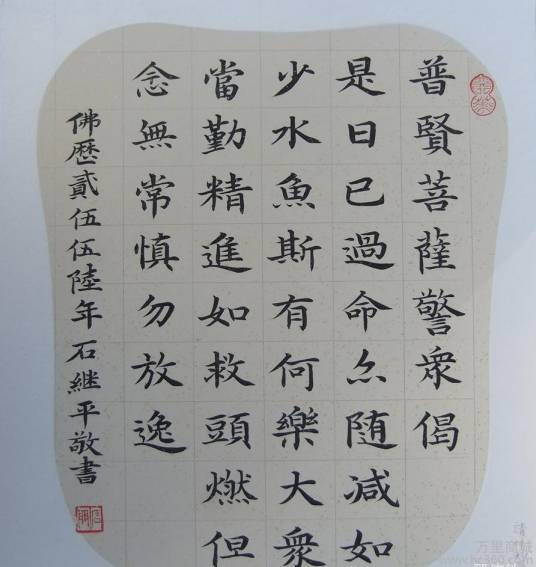 普賢菩薩警衆偈
是日已過命亦随減如
少水魚斯有何樂大衆
當勤精進如救頭燃但
念無常慎勿放逸
佛歷貳伍伍陸年石継平敬書
万里商城
www.hc360.com